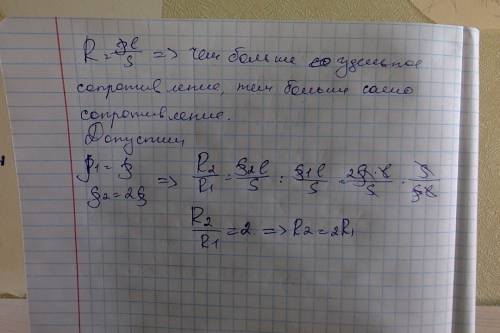 R = ρl/S => чем больше удельное
сопротивление, тем больше само
сопротивление.
Допустим
ρ1 = ρ
ρ2 = 2ρ => R2/R1 = ρ2l/S : ρ1l/S = 2ρ·l/S · S/ρl
R2/R1 = 2 => R2 = 2R1